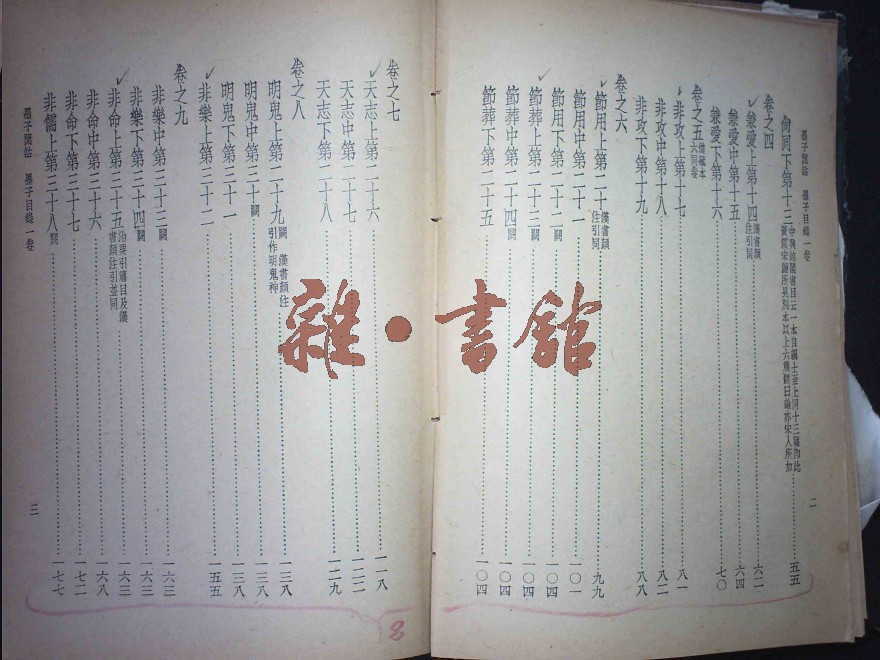 墨子閒詁　墨子目錄一卷
二
尙同下第十三……五五
卷之四
兼愛上第十四漢書顏注引同……六二
兼愛中第十五……六四
兼愛下第十六……七〇
卷之五道藏本六同卷
非攻上第十七……八一
非攻中第十八……八二
非攻下第十九……八八
卷之六
節用上第二十漢書顏注引同……九九
節用中第二十一……一〇一
節用下第二十二闕……一〇四
節葬上第二十三闕……一〇四
節葬中第二十四闕……一〇四
節葬下第二十五……一〇四
卷之七
天志上第二十六……一一八
天志中第二十七……一二二
天志下第二十八……一二九
卷之八
明鬼上第二十九闕　漢書顏注引作明鬼神……一三八
明鬼中第三十闕……一三八
明鬼下第三十一……一三八
非樂上第三十二……一五五
卷之九
非樂中第三十三闕……一六三
非樂下第三十四闕……一六三
非命上第三十五治要引篇目及漢書顏注引並同……一六三
非命中第三十六……一六八
非命下第三十七……一七二
非儒上第三十八闕……一七七
墨子閒詁　墨子目錄一卷
三
8
雜·書館